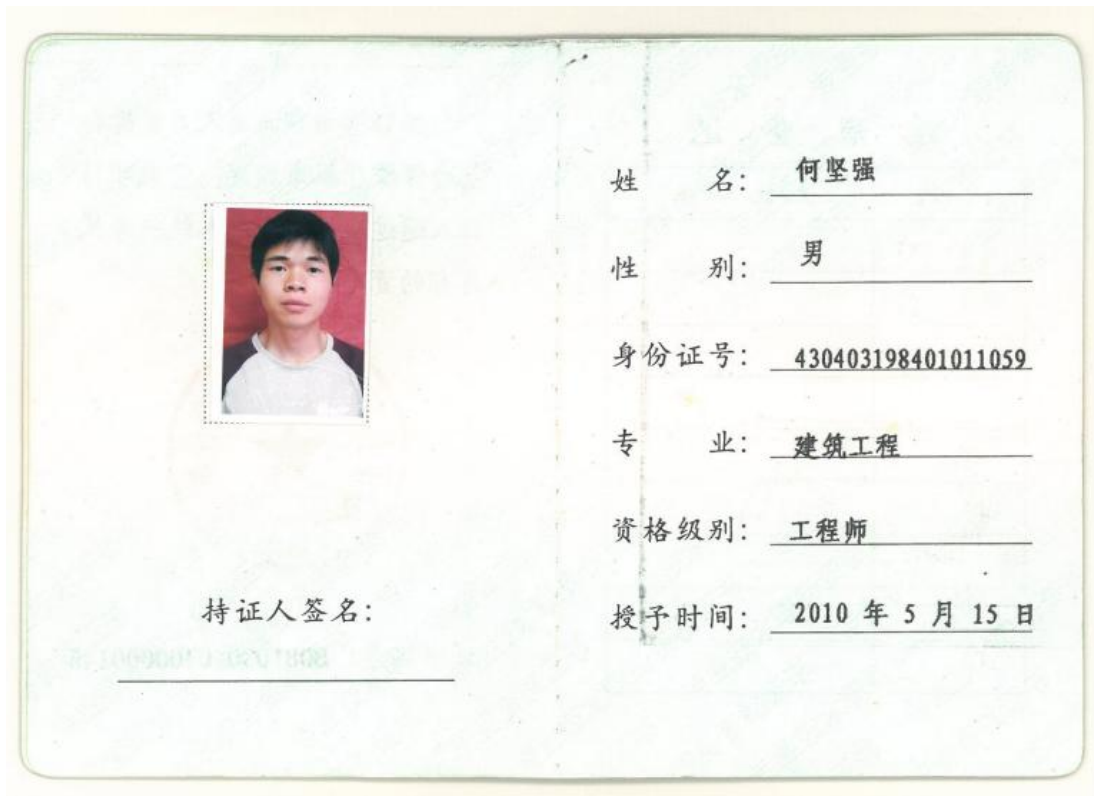 持证人签名:
姓 名: 何坚强
性 别: 男
身份证号: 430403198401011059
专 业: 建筑工程
资格级别: 工程师
授予时间: 2010 年 5 月 15 日